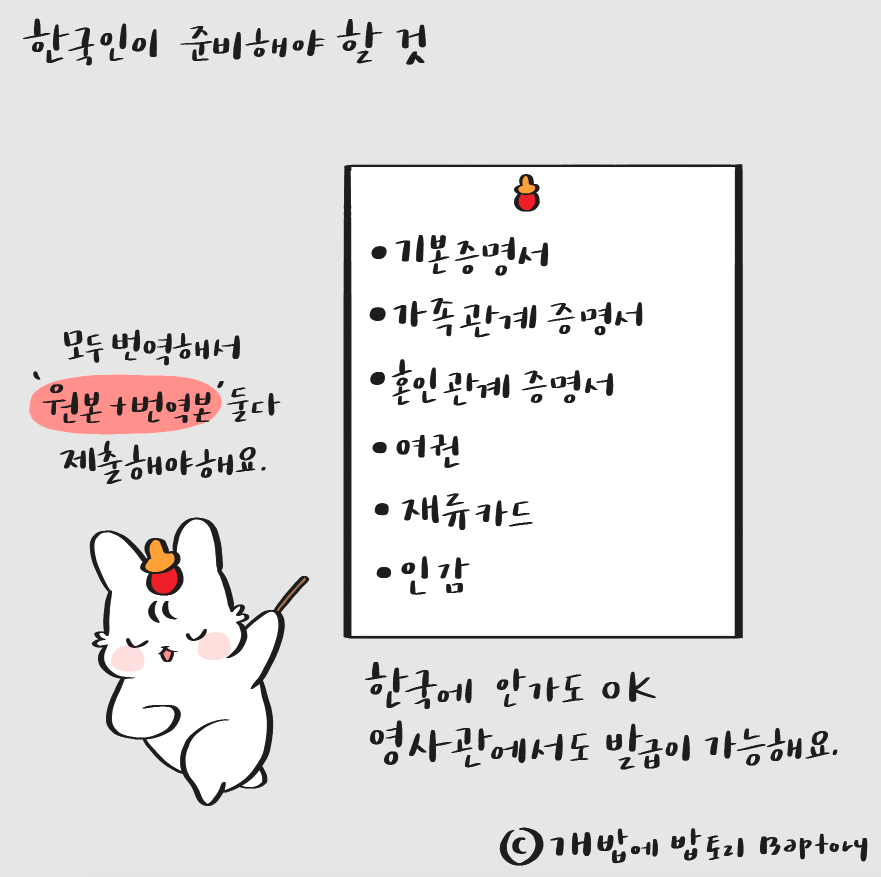 한국인이 준비해야 할 것
• 기본증명서
• 가족관계 증명서
• 혼인관계 증명서
• 여권
• 재류카드
• 인감
모두 번역해서
'원본+번역본' 둘다
제출해야해요.
한국에 안가도 OK
영사관에서도 발급이 가능해요.
© 개밥에 밥토리 Baptory